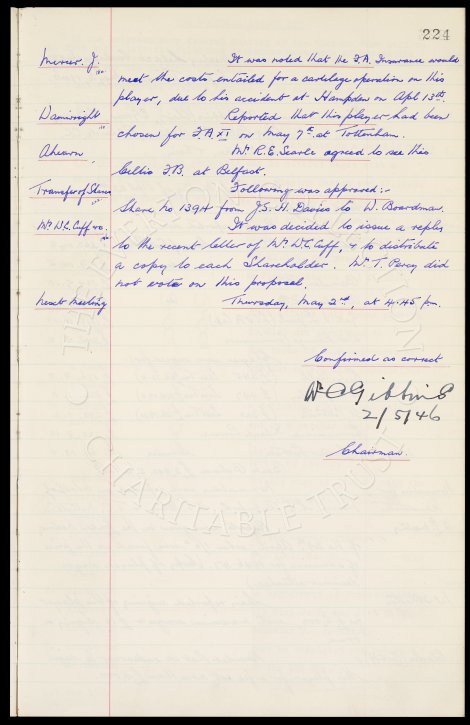 224
Mercer. J. It was noted that the F.A. Insurance would
meet the costs entailed for a cartilage operation on this
player, due to his accident at Hampden on Apl 13th.
Wainwright Reported that this player had been
chosen for F.A XI on May 7th at Tottenham.
Ahearn Mr R.E. Searle agreed to see this
Celtic F.B. at Belfast.
Transfer of Shares Following was approved:-
Share No 1394 from J.S.H. Davies to W. Boardman.
Mr W.C. Cuff It was decided to issue a reply
to the recent letter of Mr W.C. Cuff, & to distribute
a copy to each Shareholder. Mr T. Percy did
not vote on this proposal.
Next Meeting Thursday, May 2nd, at 4.45 pm.
Confirmed as correct
W C Gibbins
2/5/46
Chairman.
CHARITABLE TRUST